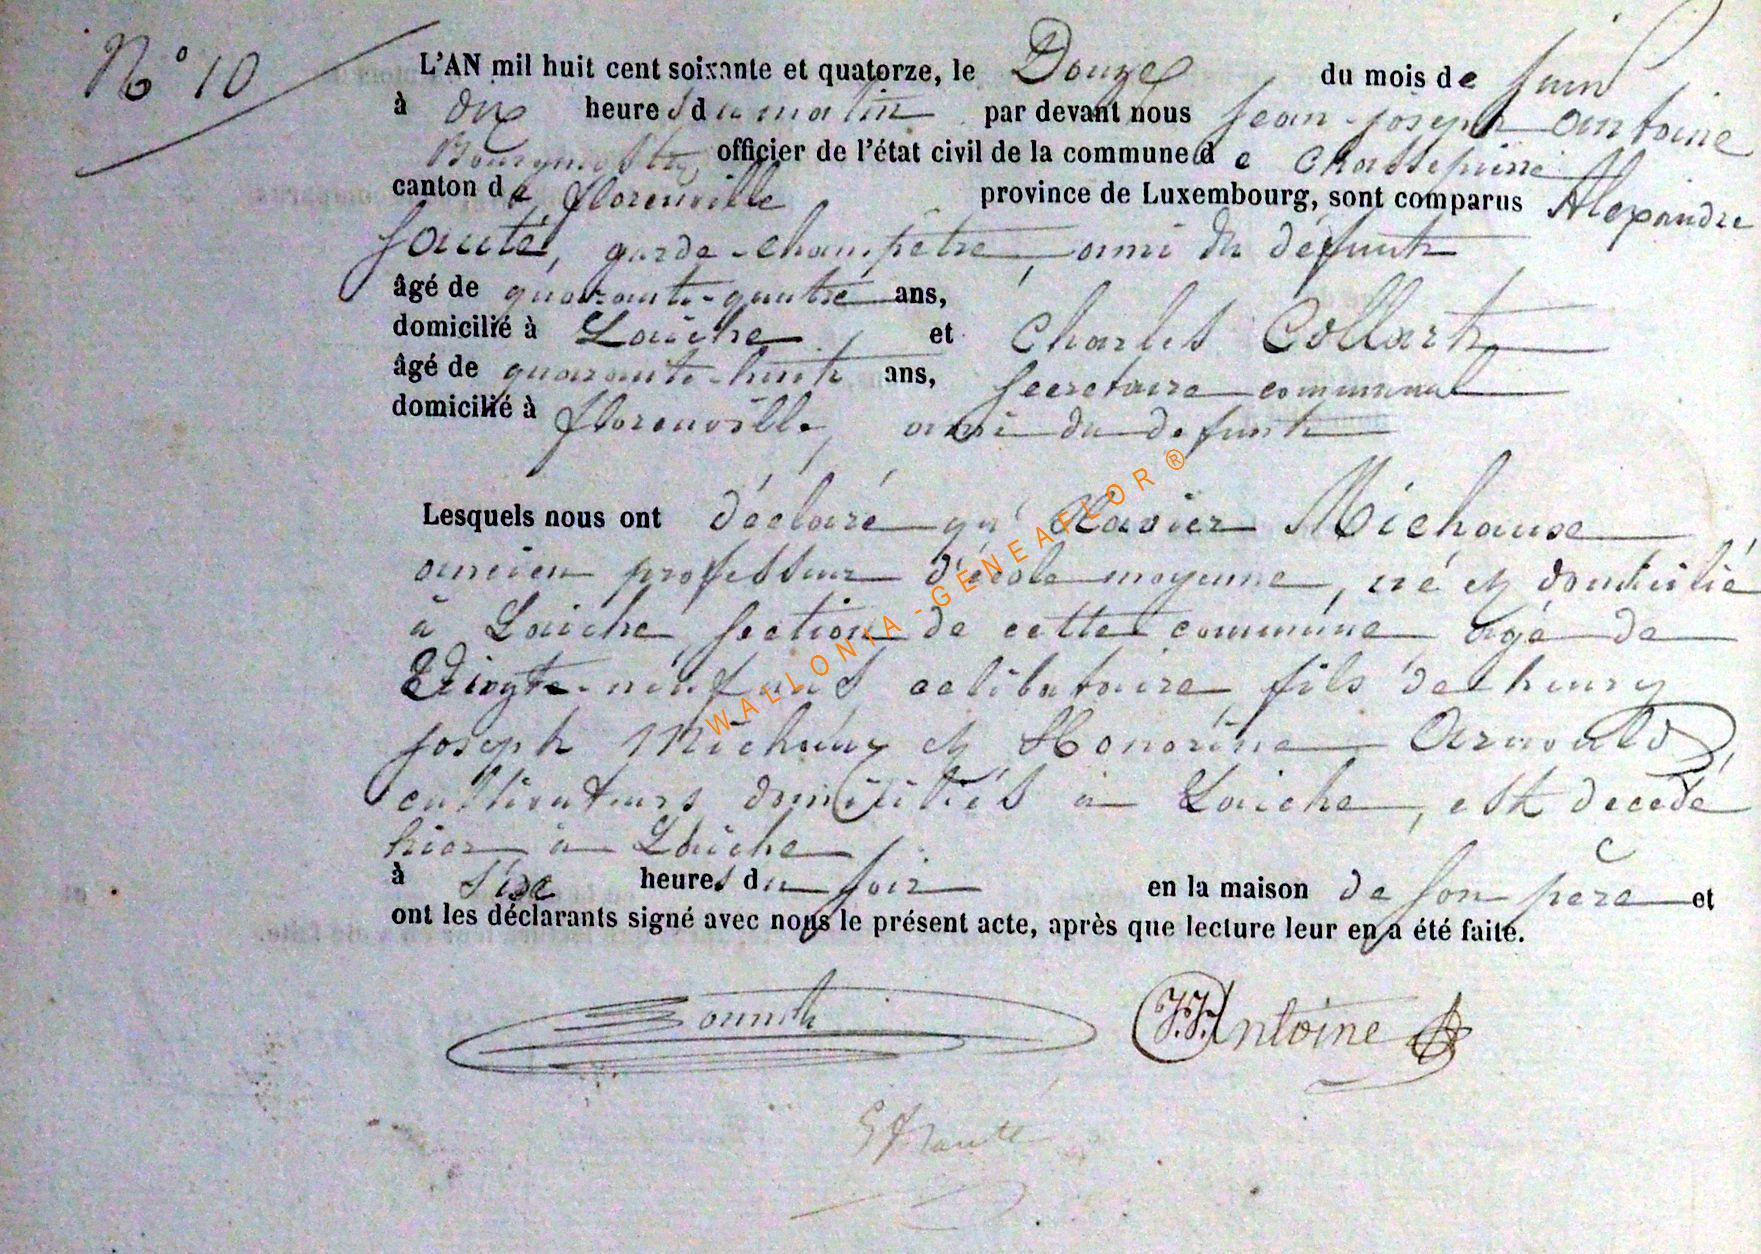 N° 10
L'AN mil huit cent soixante et quatorze, le Douze du mois de juin
à dix heures du matin par devant nous Jean-joseph Antoine
Bourgmestre officier de l'état civil de la commune de Chassepierre
canton de florenville province de Luxembourg, sont comparus Alexandre
garde-champêtre, ami du défunt
âgé de quarante-quatre ans,
domicilié à Laiche et Charles Collart
âgé de quarante-huit ans, secretaire communal
domicilié à florenville, ami du defunt
Lesquels nous ont déclaré qu' Xavier Michaux
ancien professeur d'école moyenne, né et domicilié
à Laiche section de cette commune âgé de
Vingt-neuf ans celibataire fils de henry
joseph Michaux et Honorine Arnould
cultivateurs domiciliés à Laiche, est decedé
hier à Laiche
à six heures du soir en la maison de son père et
ont les déclarants signé avec nous le présent acte, après que lecture leur en a été faite.
J.J. Antoine
WALLONIA-GENEAFLOR ®